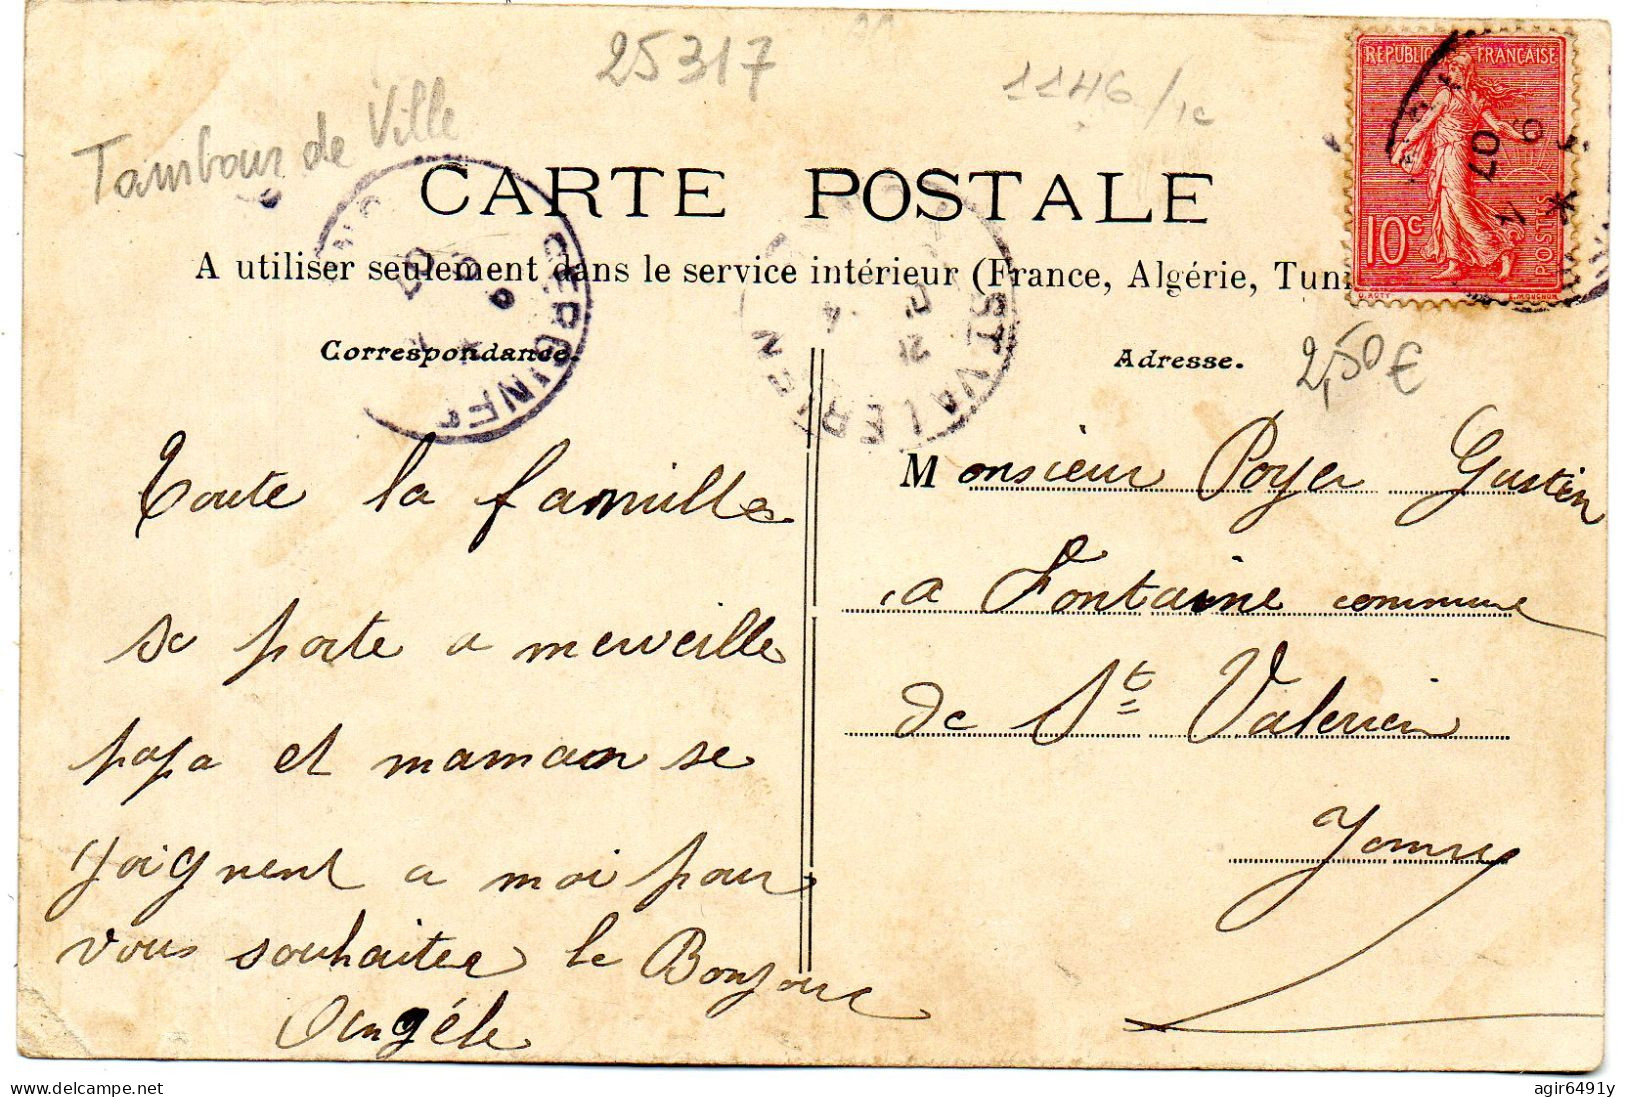 25317
1146/1c
Tambour de Ville
RÉPUBLIQUE FRANÇAISE
10 c
POSTES
O. ROTY
E. MOUCHON
07
CARTE POSTALE
A utiliser seulement dans le service intérieur (France, Algérie, Tuni
Correspondance.
Adresse.
2,50€
ST VALERIEN
Toute la famille
se porte a merveille
papa et maman se
joignent a moi pour
vous souhaiter le Bonjour
Angéle
Monsieur Poyer Gustin
a Fontaine commune
de St Valerien
Yonne
delcampe.net
agir6491y